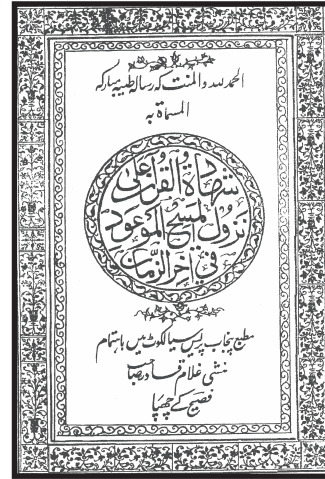 الحمد للہ والمنت کہ رسالہ طیبہ مبارکہ
المسماة بہ
شهادة القرآن على
نزول المسيح الموعود
في آخر الزمان
مطبع پنجاب پریس سیالکوٹ میں باہتمام
منشی غلام قادر صاحب
فصیح کے چھپا